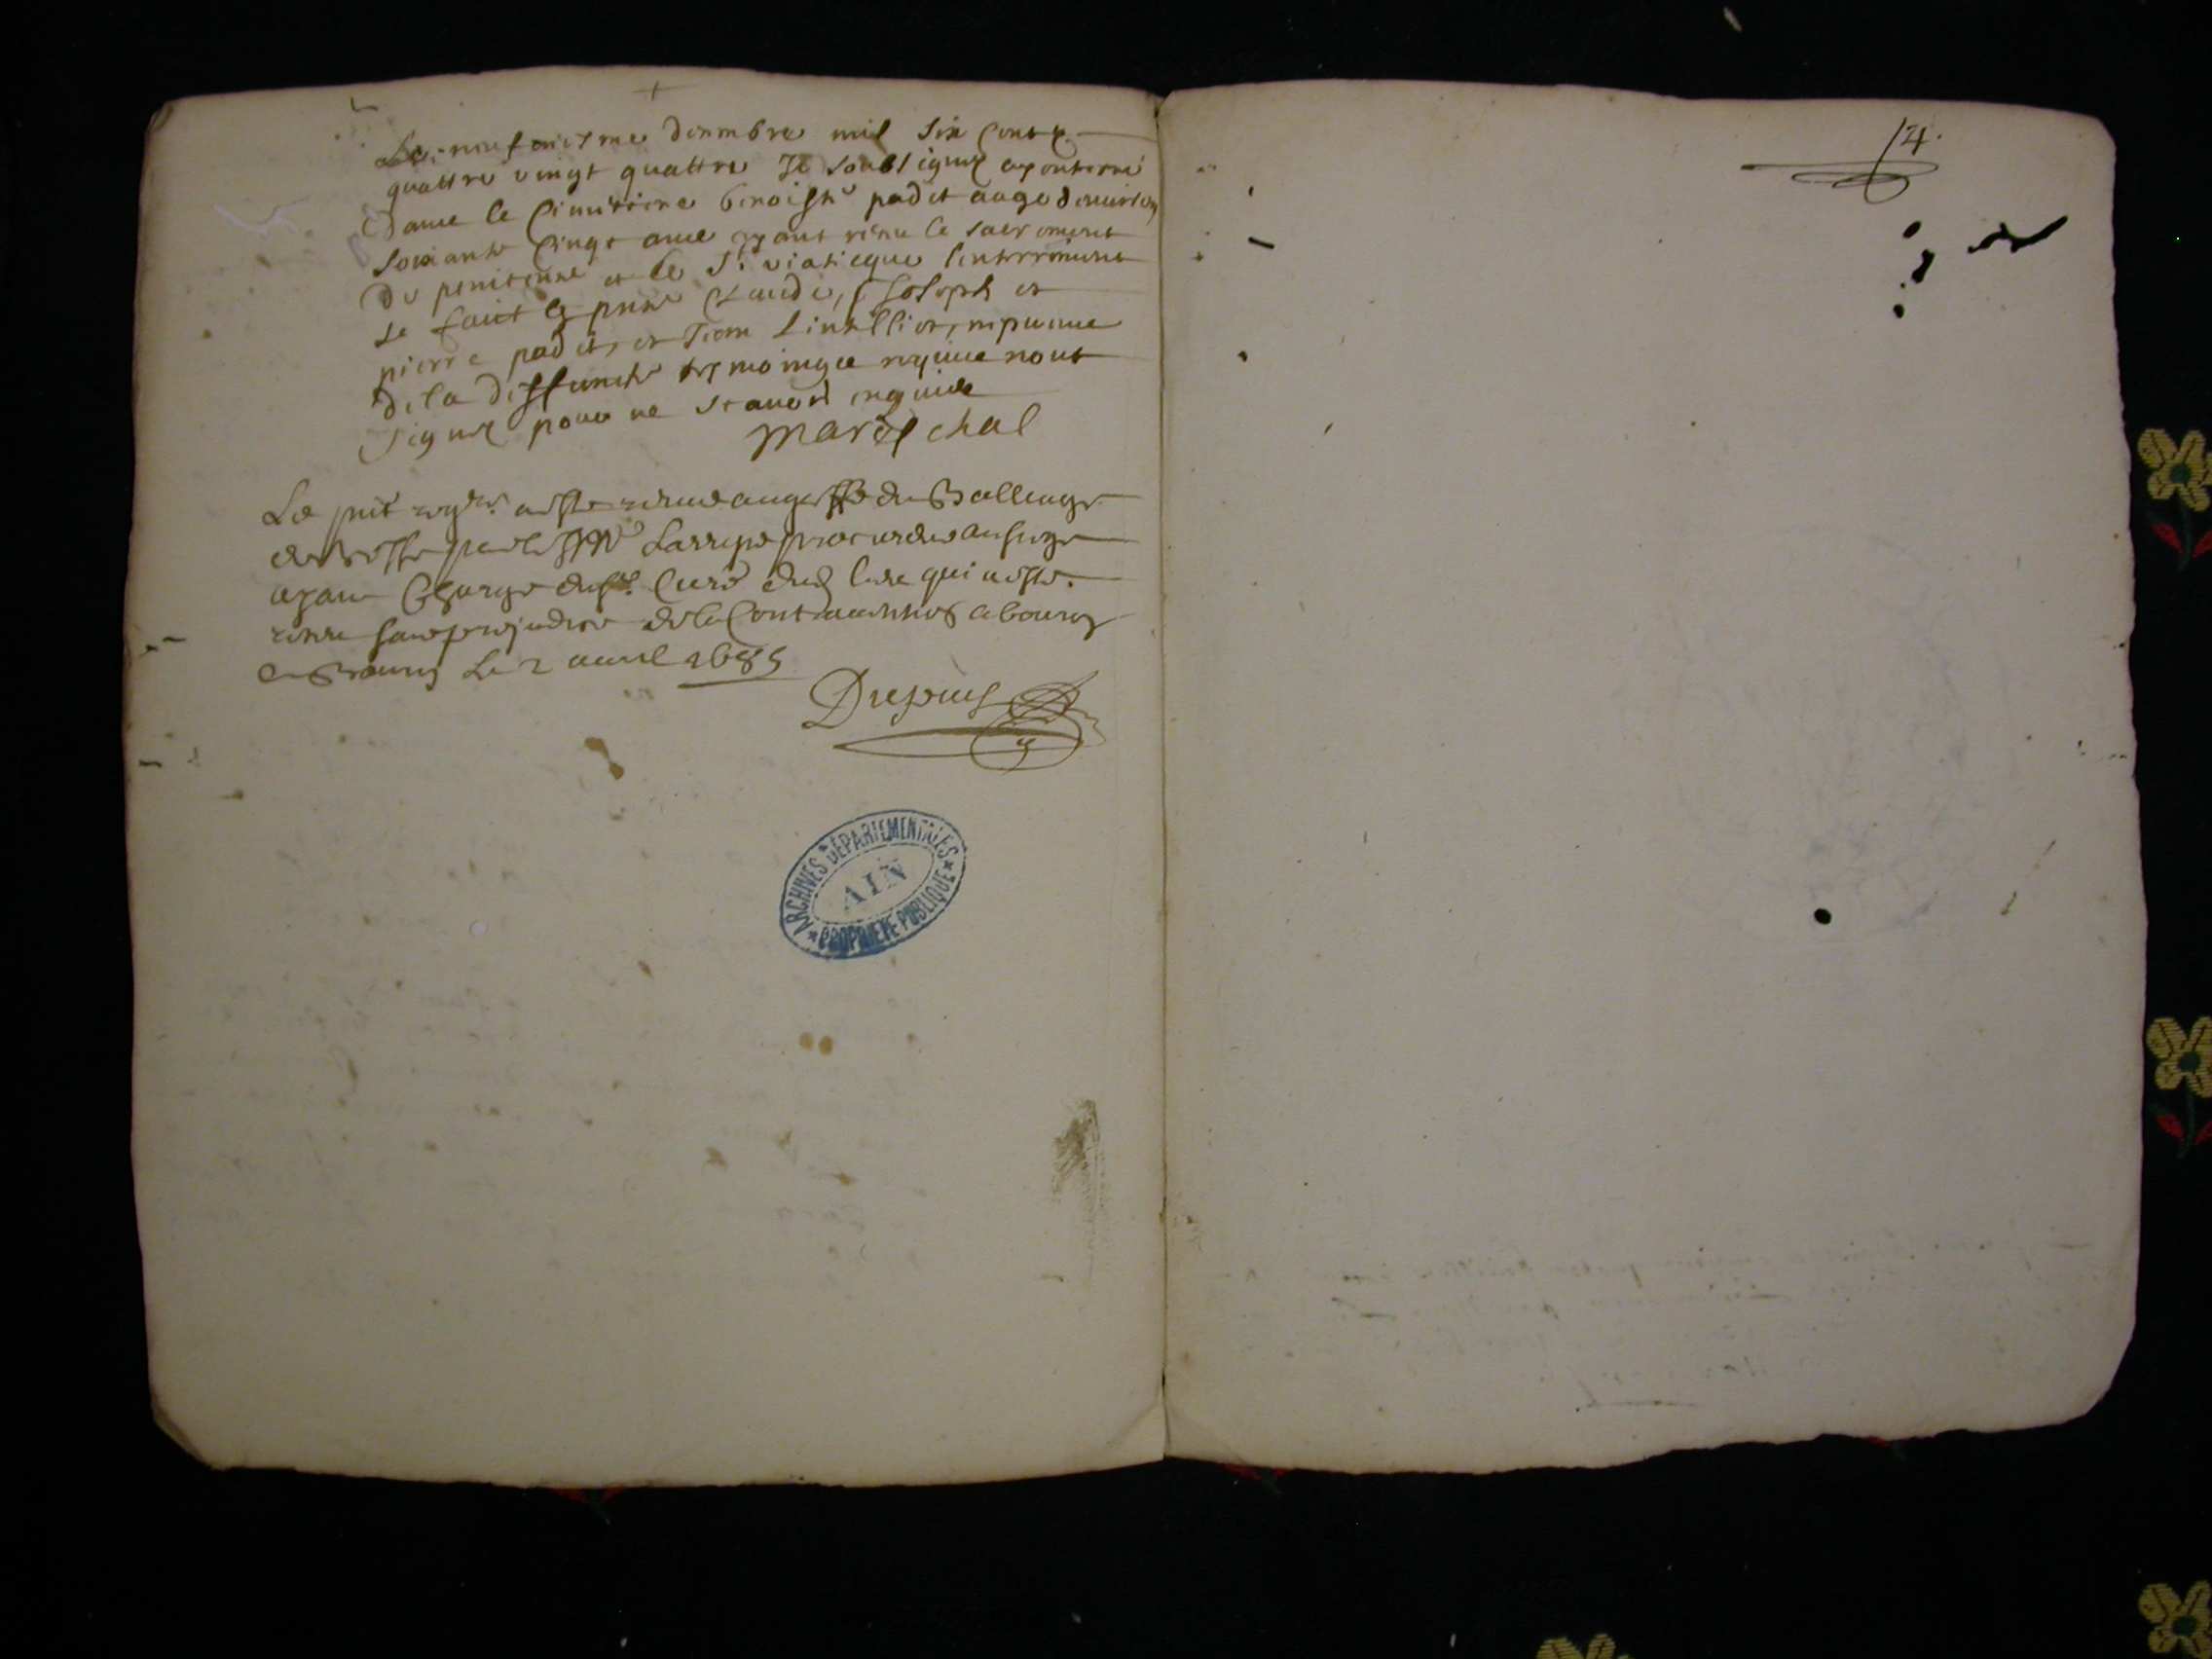 Le neufviesme decembre mil six centz
quattre vingt quattre Je soubsigné ay enterré
dans le Cimitiere benoiste padet augé denviron
soixante cinqt ans ayant receu le sacrement
de penitence et le St viaticque l'enterrement
se faict en pnce Claude, Joseph et
pierre padet, et
de la deffuncte tesmoings requis nont
signé pour ne scavoir enquis
mareschal
Le pnt regre. a esté remis au greffe du Balliage
de Bresse par
ayant charge du Sr. Curé dud lieu qui a esté
receu sans prejudice de la a bourg
en Bresse Le 2 avril 1685
Dupuis
ARCHIVES DÉPARTEMENTALES
AIN
PROPRIÉTÉ PUBLIQUE
14.